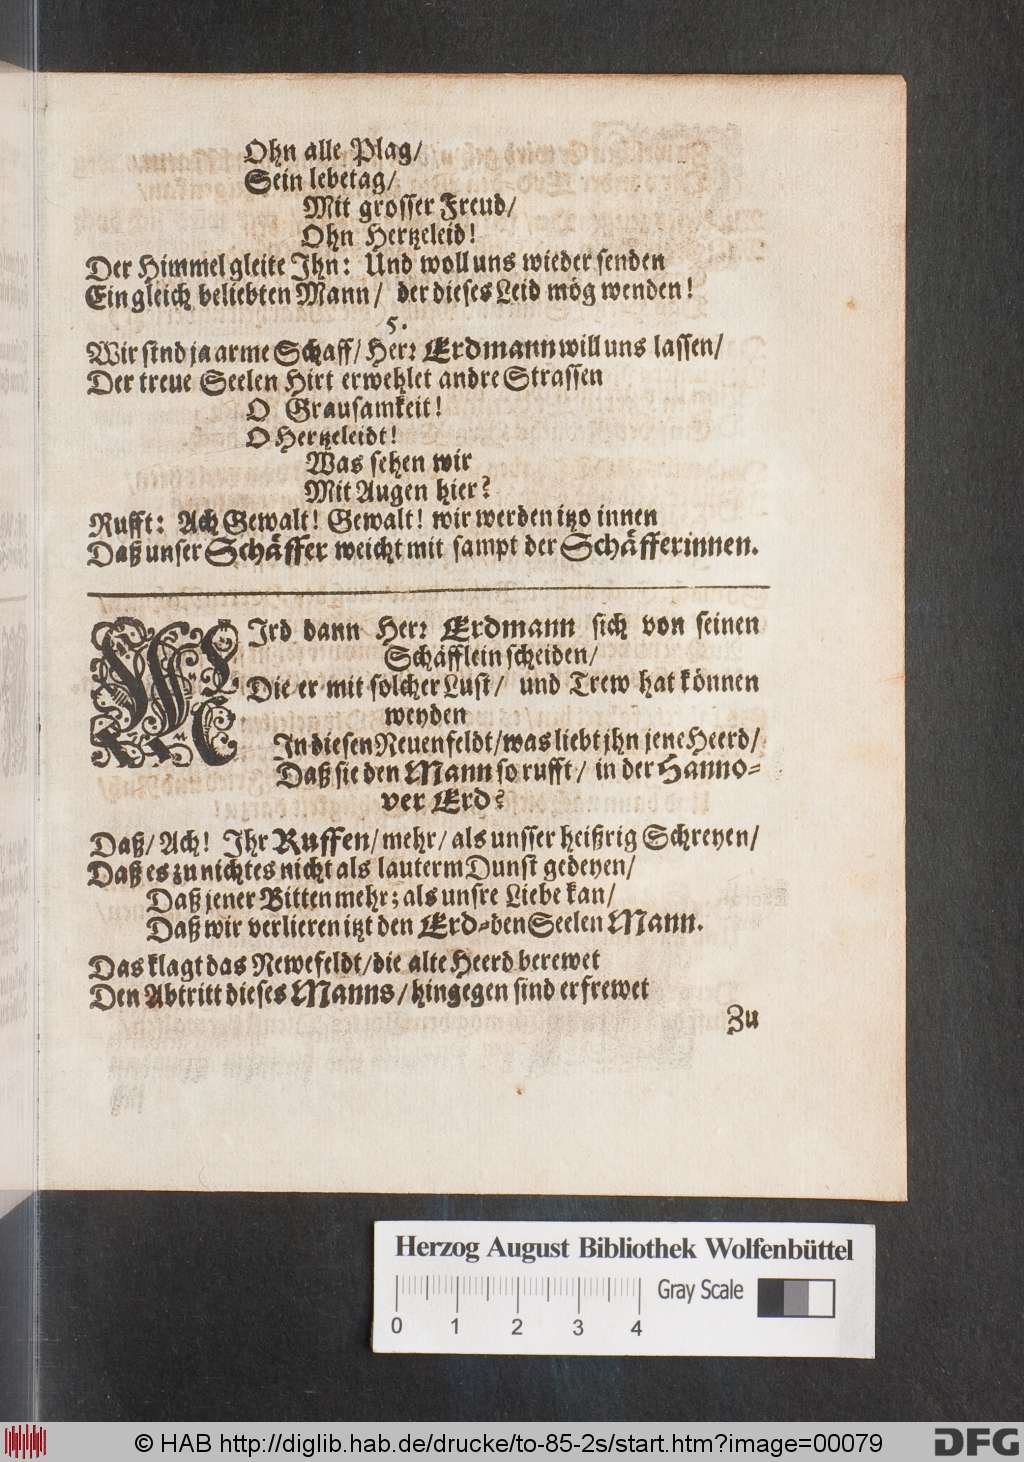 Ohn alle Plag/
Sein lebetag/
Mit grosser Freud/
Ohn Hertzeleid!
Der Himmel gleite Ihn: Und woll uns wieder senden
Ein gleich beliebten Mann/ der dieses Leid mög wenden!
5.
Wir sind ja arme Schaff/ Herr Erdmann will uns lassen/
Der treue Seelen Hirt erwehlet andre Strassen
O Grausamkeit!
O Hertzeleidt!
Was sehen wir
Mit Augen hier?
Rufft: Ach Gewalt! Gewalt! wir werden itzo innen
Daß unser Schäffer weicht mit sampt der Schäfferinnen.
WIrd dann Herr Erdmann sich von seinen
Schäfflein scheiden/
Die er mit solcher Lust/ und Trew hat können
weyden
In diesen Neuenfeldt/ was liebt jhn jene Heerd/
Daß sie den Mann so rufft/ in der Hanno-
ver Erd?
Daß/ Ach! Ihr Ruffen/ mehr/ als unsser heißrig Schreyen/
Daß es zu nichtes nicht als lauterm Dunst gedeyen/
Daß jener Bitten mehr; als unsre Liebe kan/
Daß wir verlieren itzt den Erd-den Seelen Mann.
Das klagt das Newefeldt/ die alte Heerd berewet
Den Abtritt dieses Manns/ hingegen sind erfrewet
Zu
Herzog August Bibliothek Wolfenbüttel
Gray Scale
0 1 2 3 4
© HAB http://diglib.hab.de/drucke/to-85-2s/start.htm?image=00079
DFG